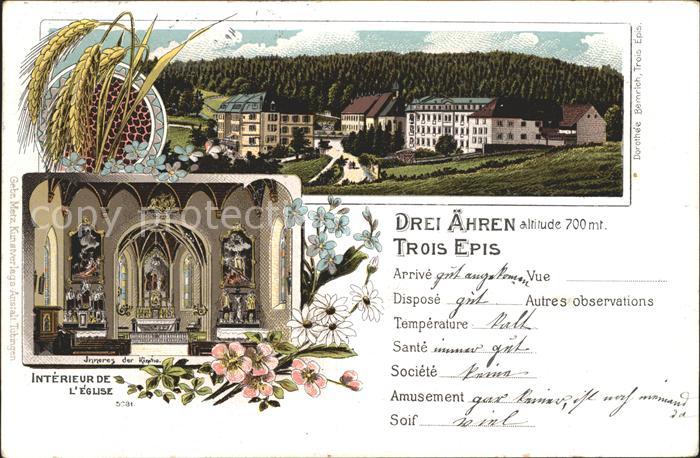 Dorothée Beinrich, Trois Epis.
Gebr. Metz Kunstverlags-Anstalt, Tübingen
copy protected
DREI ÄHREN altitude 700 mt.
TROIS EPIS
Arrivé gut angekomen Vue
Disposé gut Autres observations
Température kalt
Santé immer gut
Société keine
Amusement gar keiner, ist noch niemand
da
Soif viel
Inneres der Kirche.
INTÉRIEUR DE
L'ÉGLISE
5081.